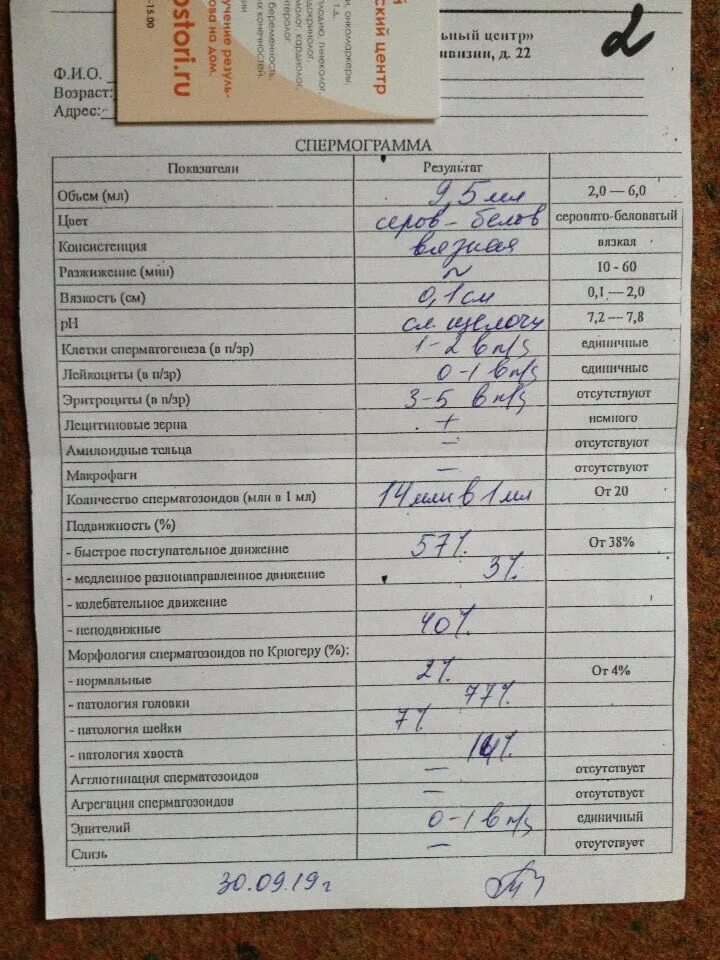 15.00
ostori.ru
учение резуль-
ова на дом.
беременность,
х конечностей.
плодию, гинеколог,
докринолог,
молог, кардиолог,
нтеролог.
и, онкомаркеры,
т.д.
ский центр
2
льный центр»
ивизии, д. 22
Ф.И.О.
Возраст:
Адрес:
СПЕРМОГРАММА
Показатели Результат
Объем (мл) 9,5 мл 2,0 — 6,0
Цвет серов - белов серовато-беловатый
Консистенция вязкая вязкая
Разжижение (мин) ~ 10 - 60
Вязкость (см) 0,1 см 0,1 — 2,0
pH сл. щелочн 7,2 — 7,8
Клетки сперматогенеза (в п/зр) 1-2 в п/з единичные
Лейкоциты (в п/зр) 0-1 в п/з единичные
Эритроциты (в п/зр) 3-5 в п/з отсутствуют
Лецитиновые зерна + немного
Амилоидные тельца − отсутствуют
Макрофаги − отсутствуют
Количество сперматозоидов (млн в 1 мл) 14 млн в 1 мл От 20
Подвижность (%)
- быстрое поступательное движение 57% От 38%
- медленное разнонаправленное движение 3%
- колебательное движение
- неподвижные 40%
Морфология сперматозоидов по Крюгеру (%):
- нормальные 2% От 4%
- патология головки 77%
- патология шейки 7%
- патология хвоста 14%
Агглютинация сперматозоидов − отсутствует
Агрегация сперматозоидов − отсутствует
Эпителий 0-1 в п/з единичный
Слизь − отсутствует
30.09.19г